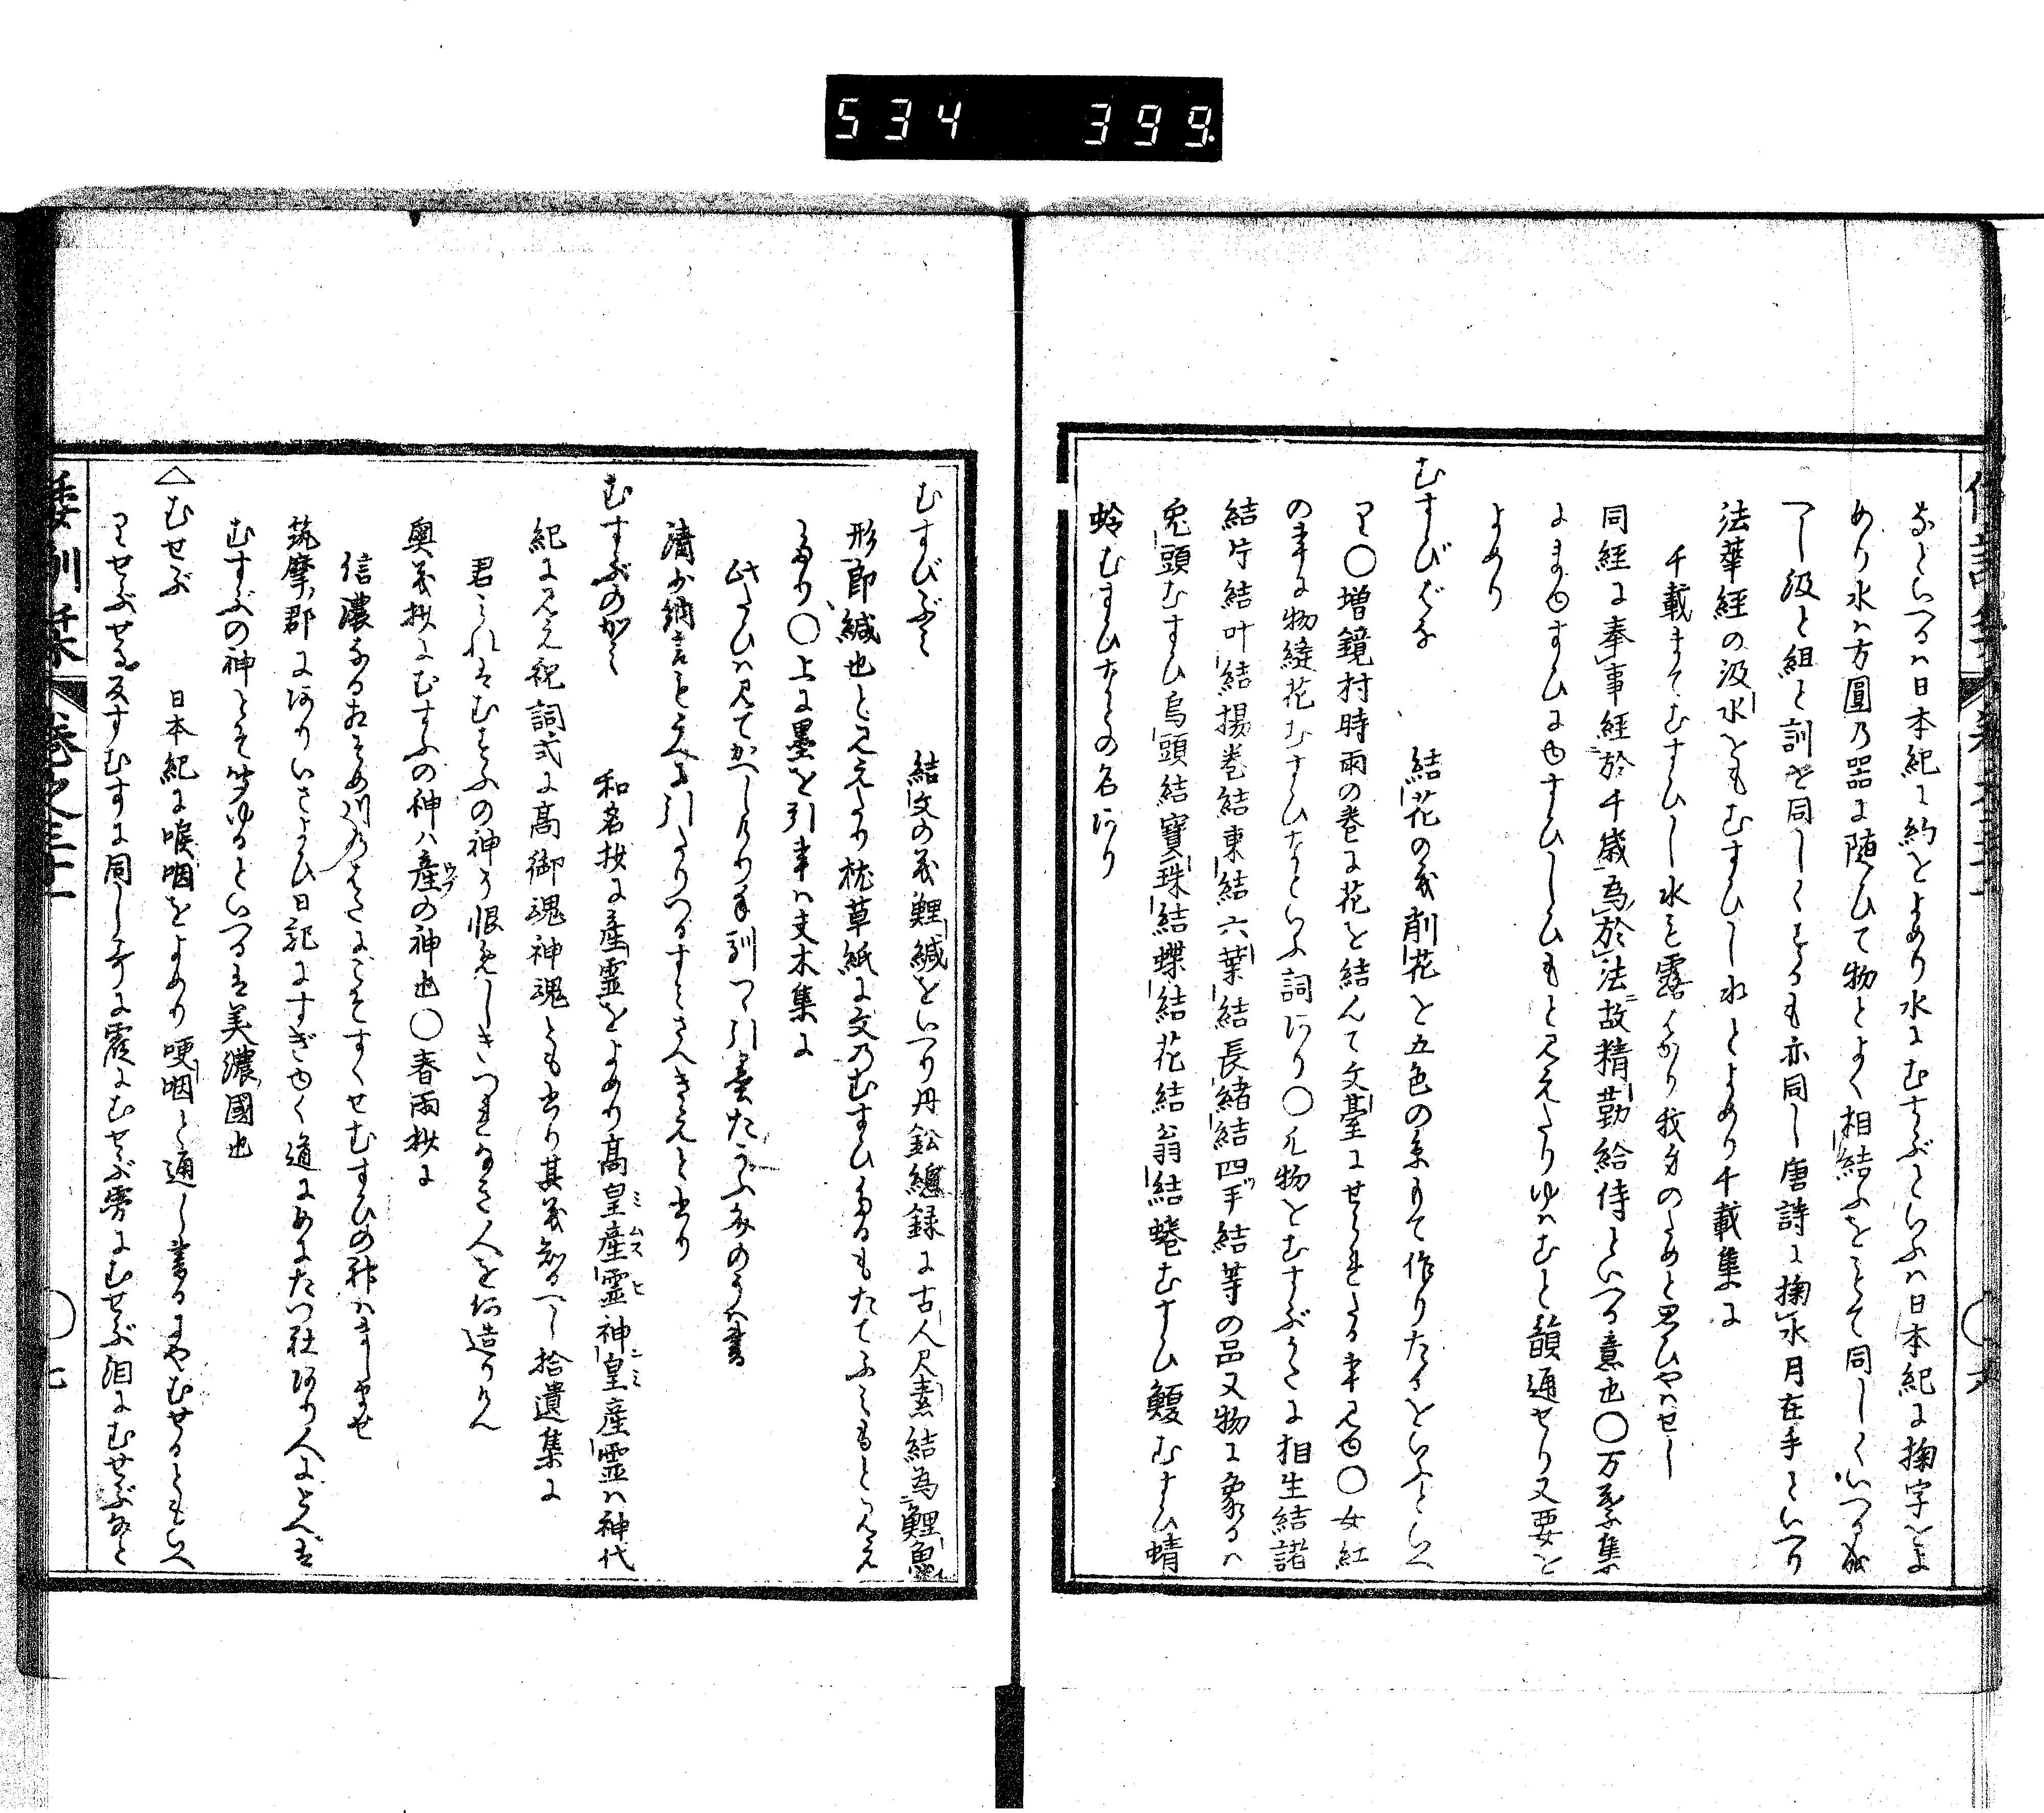 534 399
なといへるハ日本紀に約をよめり水にむすぶといふハ日本紀に掬字をよ
めり水ハ方圓乃器に随ひて物とよく相結ふをもて同しくいへる成
へし汲と組と訓を同しくするも亦同し唐詩に掬水月在手といへり
法華経の汲水をもむすひし水とよめり千載集に
千載まてむすひし水も露はかり我身のためと思ひやはせし
同経に奉事経於千歳為於法故精勤給侍といへる意也〇万葉集
にまゆすひにゆすひしひもと見えたりゆハむと韻通せり又要を
よめり
むすびばな 結花の義削花を五色の糸もて作りたるをいふといへ
り〇増鏡村時雨の巻に花を結んて文臺にせられたる事見ゆ〇女紅
の事に物縫花むすひなといふ詞あり〇凡物をむすぶかたに相生結諸
結片結叶結揚巻結東結六葉結長緒結四手結等の品又物に象るハ
兎頭むすひ烏頭結寶珠結蝶結花結翁結蜷むすひ鰒むすひ蜻
蛉むすひなとの名あり
むすびぶみ 結文の義鯉緘をいへり丹鉛總録に古人尺素結為鯉魚
形即緘也と見えたり枕草紙に文乃むすひたるもたてふみもと見え
たり〇上に墨を引事ハ夫木集に
此たひハ見てかへしけり玉列つゝ引墨たかふ文のうハ書
清少納言も上に引たりつるすミさへきえてと書り
むすぶのかミ 和名抄に産霊をよめり高皇産霊神皇産霊ハ神代
紀に見え祝詞式に高御魂神魂とも書り其義知るへし拾遺集に
君みれはむすふの神そ恨めしきつれなき人を何造りけん
奥義抄にむすふの神ハ産の神也〇春雨抄に
信濃なるあさま川乃はたにこそすくせむすひの神ハまします
筑摩郡にありいさよひ日記にすぎゆく道にめにたつ社あり人にとへば
むすぶの神とそ聞ゆるといへるは美濃國也
△むせぶ 日本紀に喉咽をよめり哽咽と通し書るにやむせるともいへ
りせぶせる反すむすに同し歌に霞にむせぶ雪にむせぶ泪にむせぶなと
倭訓栞 巻之三十一 〇七